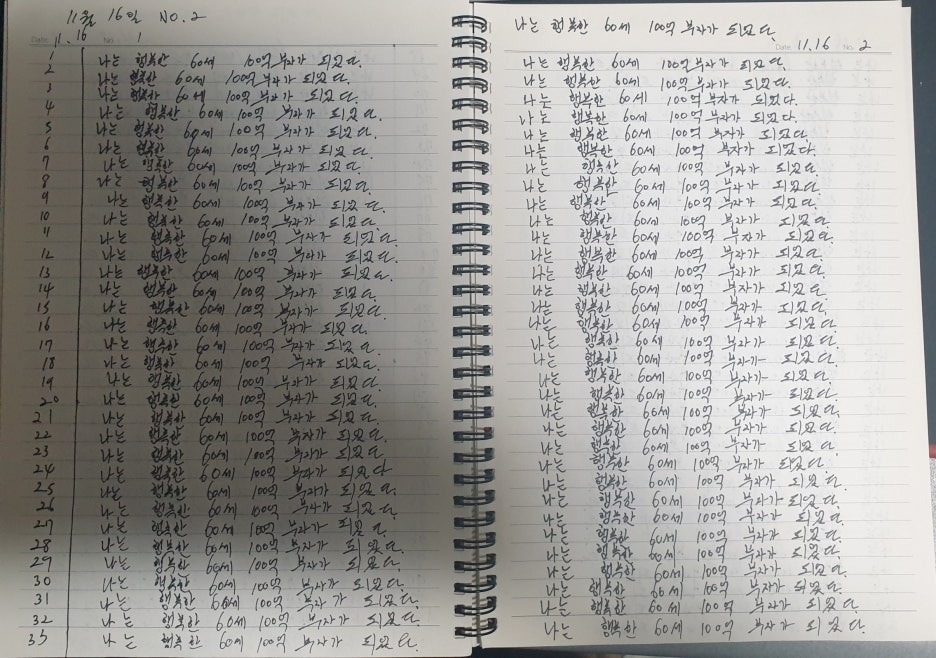 11월 16일 NO.2
Date 11.16 No. 1
1 나는 행복한 60세 100억 부자가 되었다.
2 나는 행복한 60세 100억 부자가 되었다.
3 나는 행복한 60세 100억 부자가 되었다.
4 나는 행복한 60세 100억 부자가 되었다.
5 나는 행복한 60세 100억 부자가 되었다.
6 나는 행복한 60세 100억 부자가 되었다.
7 나는 행복한 60세 100억 부자가 되었다.
8 나는 행복한 60세 100억 부자가 되었다.
9 나는 행복한 60세 100억 부자가 되었다.
10 나는 행복한 60세 100억 부자가 되었다.
11 나는 행복한 60세 100억 부자가 되었다.
12 나는 행복한 60세 100억 부자가 되었다.
13 나는 행복한 60세 100억 부자가 되었다.
14 나는 행복한 60세 100억 부자가 되었다.
15 나는 행복한 60세 100억 부자가 되었다.
16 나는 행복한 60세 100억 부자가 되었다.
17 나는 행복한 60세 100억 부자가 되었다.
18 나는 행복한 60세 100억 부자가 되었다.
19 나는 행복한 60세 100억 부자가 되었다.
20 나는 행복한 60세 100억 부자가 되었다.
21 나는 행복한 60세 100억 부자가 되었다.
22 나는 행복한 60세 100억 부자가 되었다.
23 나는 행복한 60세 100억 부자가 되었다.
24 나는 행복한 60세 100억 부자가 되었다
25 나는 행복한 60세 100억 부자가 되었다.
26 나는 행복한 60세 100억 부자가 되었다.
27 나는 행복한 60세 100억 부자가 되었다.
28 나는 행복한 60세 100억 부자가 되었다.
29 나는 행복한 60세 100억 부자가 되었다.
30 나는 행복한 60세 100억 부자가 되었다.
31 나는 행복한 60세 100억 부자가 되었다.
32 나는 행복한 60세 100억 부자가 되었다.
33 나는 행복한 60세 100억 부자가 되었다.
나는 행복한 60세 100억 부자가 되었다.
Date 11.16 No. 2
나는 행복한 60세 100억 부자가 되었다.
나는 행복한 60세 100억 부자가 되었다.
나는 행복한 60세 100억 부자가 되었다.
나는 행복한 60세 100억 부자가 되었다.
나는 행복한 60세 100억 부자가 되었다.
나는 행복한 60세 100억 부자가 되었다.
나는 행복한 60세 100억 부자가 되었다.
나는 행복한 60세 100억 부자가 되었다.
나는 행복한 60세 100억 부자가 되었다.
나는 행복한 60세 100억 부자가 되었다.
나는 행복한 60세 100억 부자가 되었다.
나는 행복한 60세 100억 부자가 되었다.
나는 행복한 60세 100억 부자가 되었다.
나는 행복한 60세 100억 부자가 되었다.
나는 행복한 60세 100억 부자가 되었다.
나는 행복한 60세 100억 부자가 되었다.
나는 행복한 60세 100억 부자가 되었다.
나는 행복한 60세 100억 부자가 되었다.
나는 행복한 60세 100억 부자가 되었다.
나는 행복한 60세 100억 부자가 되었다.
나는 행복한 60세 100억 부자가 되었다.
나는 행복한 60세 100억 부자가 되었다.
나는 행복한 60세 100억 부자가 되었다.
나는 행복한 60세 100억 부자가 되었다.
나는 행복한 60세 100억 부자가 되었다.
나는 행복한 60세 100억 부자가 되었다.
나는 행복한 60세 100억 부자가 되었다.
나는 행복한 60세 100억 부자가 되었다.
나는 행복한 60세 100억 부자가 되었다.
나는 행복한 60세 100억 부자가 되었다.
나는 행복한 60세 100억 부자가 되었다.
나는 행복한 60세 100억 부자가 되었다.
나는 행복한 60세 100억 부자가 되었다.